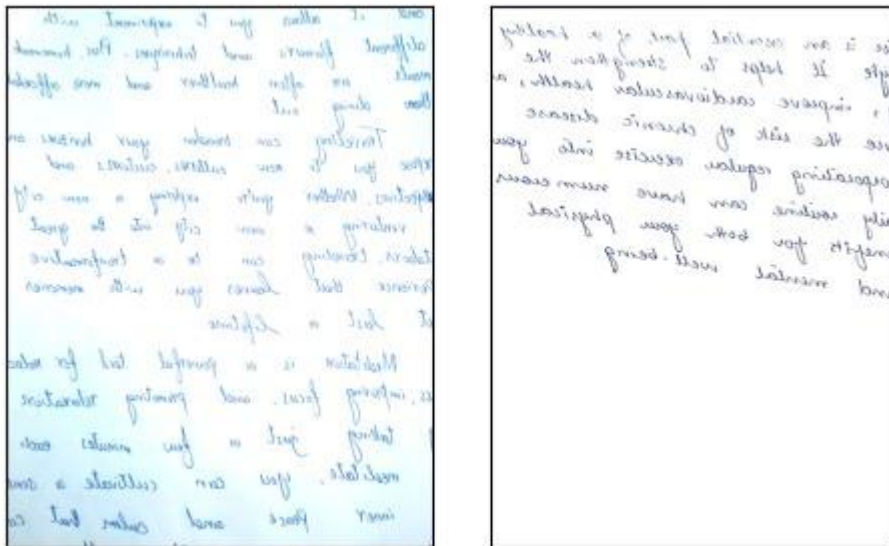 and it allows you to experiment with
different flavours and techniques. Plus, homemade
meals are often healthier and more affordable
than dining out
Traveling can broaden your horizons and
expose you to new cultures, customs and
perspectives. Whether you're exploring a new city
venturing a new city into the great
outdoors, traveling can be a transformative
experience that leaves you with memories
that last a lifetime
Meditation is a powerful tool for reduc
ss, improving focus, and promoting relaxation
taking just a few minutes each
meditate, you can cultivate a sens
inner peace and calm that ca
se is an essential part of a healthy
style. It helps to strengthen the
, improve cardiovascular health, a
uce the risk of chronic disease
ncorporating regular exercise into your
aily routine can have numerous
enefits for both your physical
and mental well-being